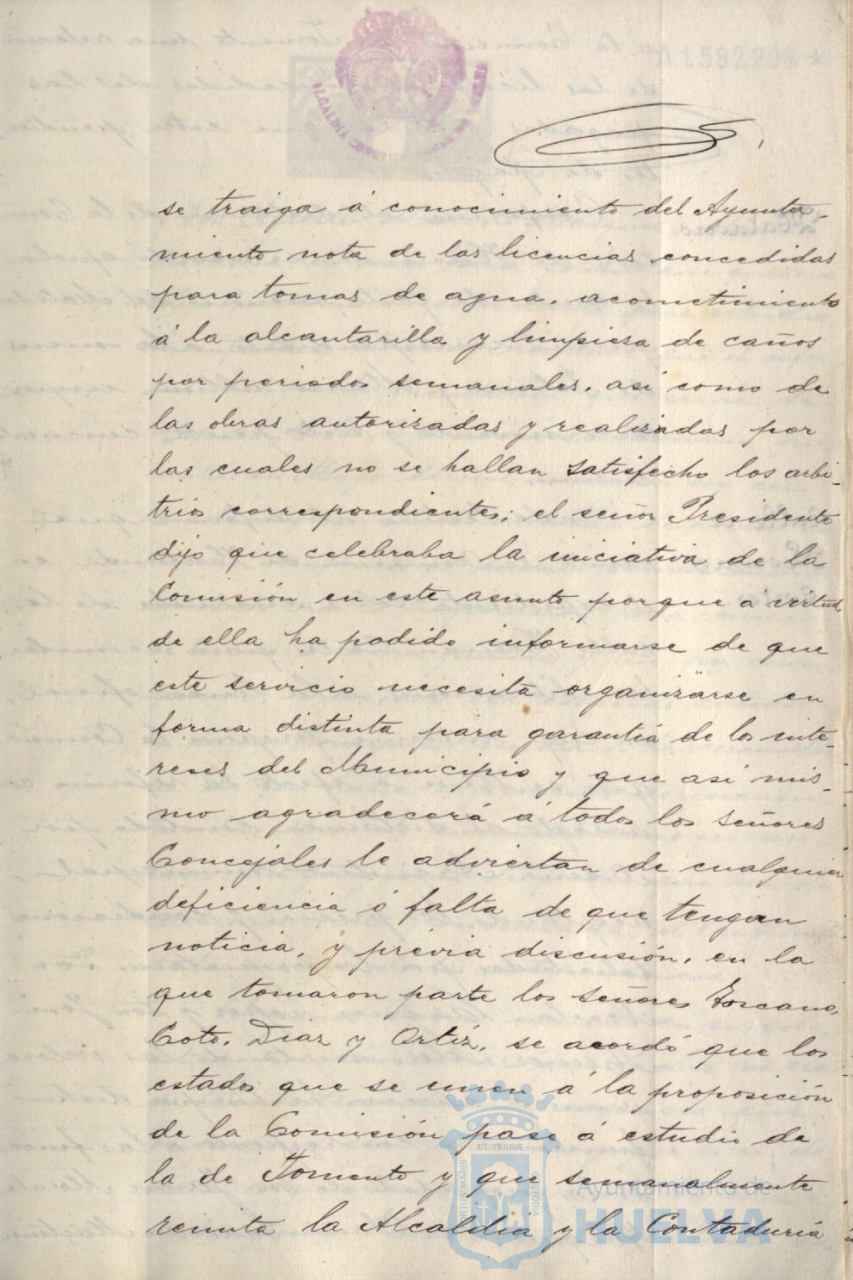 se traiga á conocimiento del Ayunta-
miento nota de las licencias concedidas
para tomas de agua, acometimiento
á la alcantarilla y limpieza de caños
por periodos semanales, así como de
las obras autorizadas y realizadas por
las cuales no se hallan satisfecho los arbi-
trios correspondientes; el señor Presidente
dijo que celebraba la iniciativa de la
Comisión en este asunto porque á virtud
de ella ha podido informarse de que
este servicio necesita organizarse en
forma distinta para garantiá de los inte-
reses del Municipio y que así mis-
mo agradecerá á todos los señores
Concejales le adviertan de cualquier
deficiencia ó falta de que tengan
noticia, y prévia discusión, en la
que tomaron parte los señores Toscano,
Coto, Diaz y Ortíz, se acordó que los
estados que se unen á la proposición
de la Comisión pase á estudio de
la de Fomento y que semanalmente
remita la Alcaldia y la Contaduría
Ayuntamiento de
HUELVA